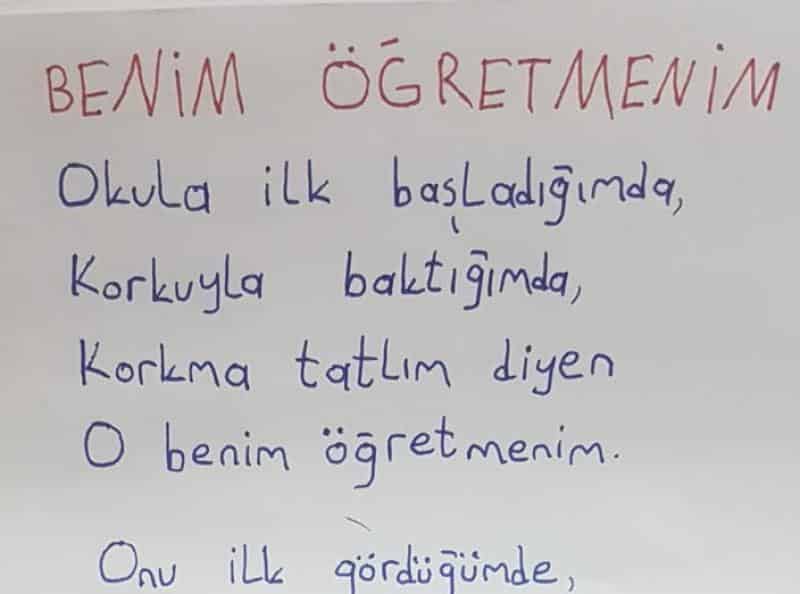 BENİM ÖĞRETMENİM
Okula ilk başladığımda,
Korkuyla baktığımda,
Korkma tatlım diyen
O benim öğretmenim.
Onu ilk gördüğümde,